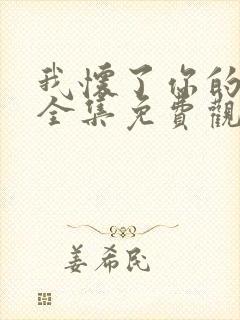 我懷了你的
全集免費觀
姜希民